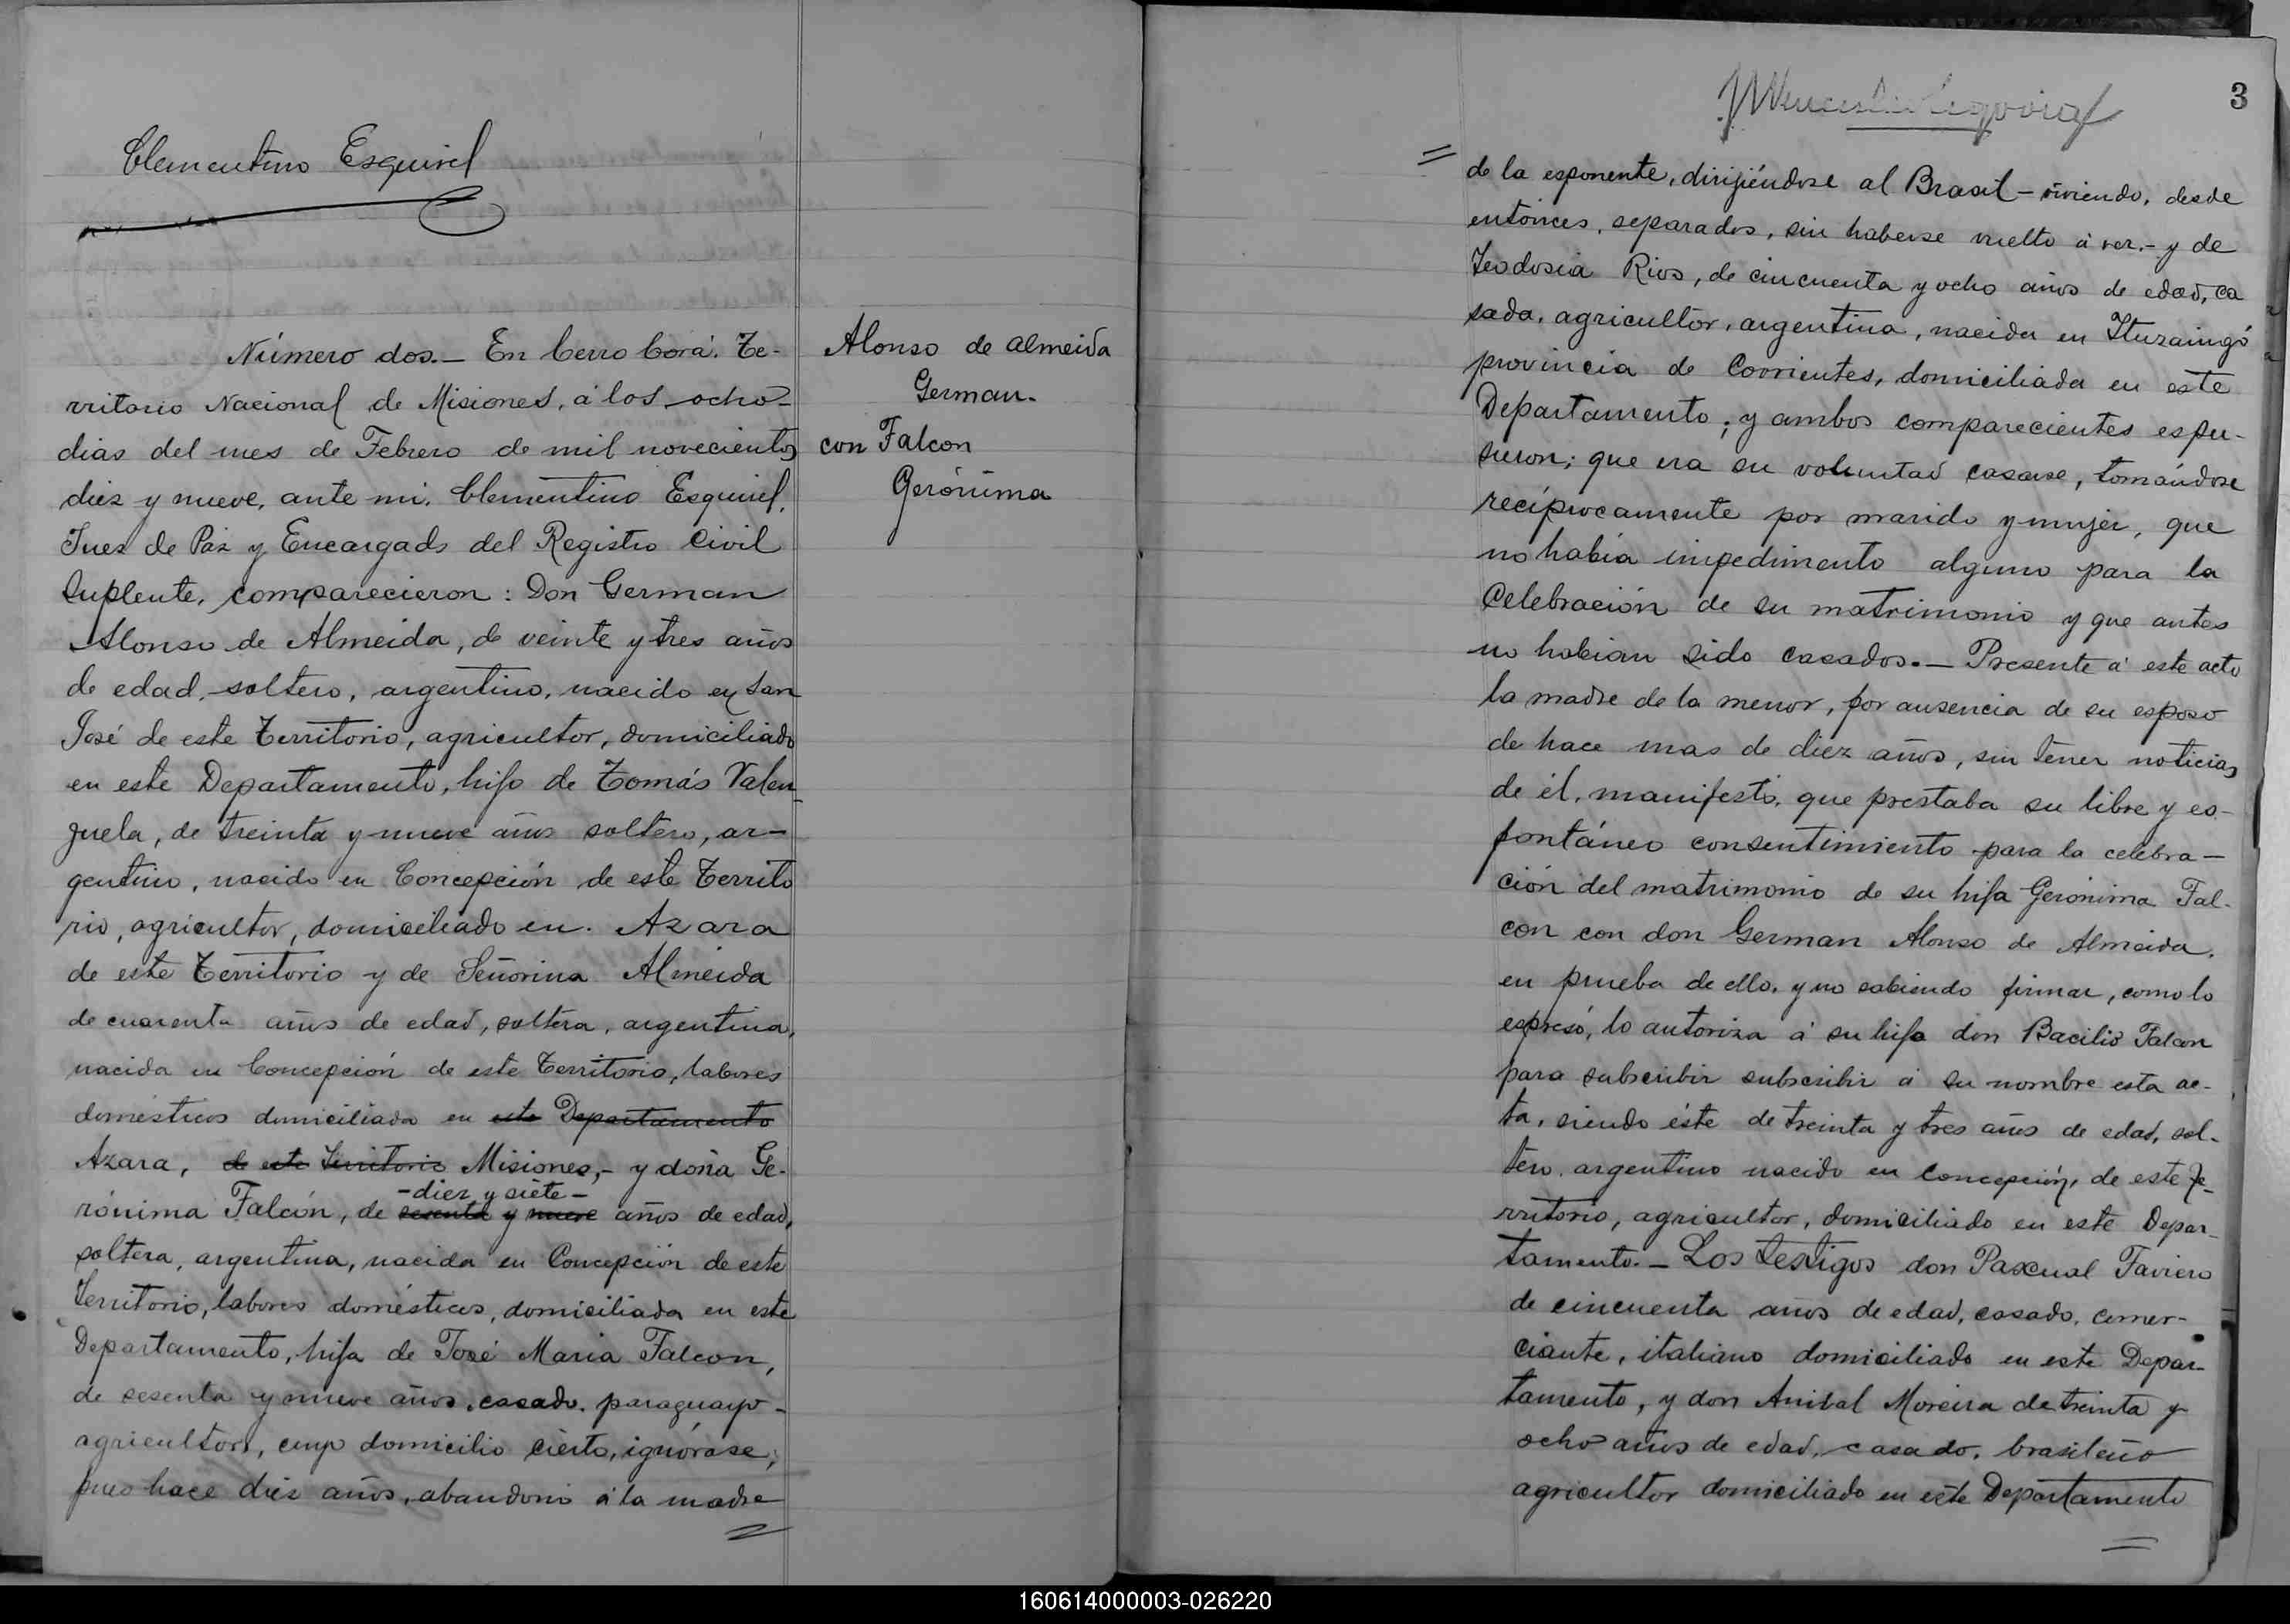 Clementino Esquivel
Número dos.— En Cerro Corá. Te-
rritorio Nacional de Misiones, á los ocho-
dias del mes de Febrero de mil novecientos
diez y nueve, ante mi, Clementino Esquivel,
Juez de Paz y Encargado del Registro Civil
Suplente, comparecieron: Don German
Alonso de Almeida, de veinte y tres años
de edad, soltero, argentino, nacido en San
José de este Territorio, agricultor, domiciliado
en este Departamento, hijo de Tomás Valen-
zuela, de treinta y nueve años soltero, ar-
gentino, nacido en Concepción de este Territo
rio, agricultor, domiciliado en. Azara
de este Territorio y de Señorina Almeida
de cuarenta años de edad, soltera, argentina,
nacida en Concepción de este Territorio, labores
domésticos domiciliada en este Departamento
Azara, de este Territorio Misiones,- y doña Ge-
-diez y siete-
rónima Falcón, de sesenta y nueve años de edad,
soltera, argentina, nacida en Concepción de este
Territorio, labores domésticos, domiciliada en este
Departamento, hija de José Maria Falcon,
de sesenta y nueve años, casado, paraguayo-
agricultor, cuyo domicilio cierto, ignórase,
pues hace diez años, abandonó á la madre
Alonso de Almeida
German.
con Falcon
Gerónima
3
de la esponente, dirijiéndose al Brasil - viviendo, desde
entonces, separados, sin haberse vuelto á ver.- y de
Teodosia Rios, de cincuenta y ocho años de edad, ca
sada, agricultor, argentina, nacida en Ituzaingó
provincia de Corrientes, domiciliada en este
Departamento; y ambos comparecientes espu-
sieron; que era su voluntad casarse, tomándose
recíprocamente por marido y mujer, que
no había impedimento alguno para la
Celebración de su matrimonio y que antes
no habian sido casados.— Presente á este acto
la madre de la menor, por ausencia de su esposo
de hace mas de diez años, sin tener noticias
de él, manifestó, que prestaba su libre y es-
pontáneo consentimiento para la celebra-
ción del matrimonio de su hija Gerónima Fal-
con con don German Alonso de Almeida,
en prueba de ello, y no sabiendo firmar, como lo
espresó, lo autoriza á su hijo don Bacilio Falcon
para subscribir subscribir á su nombre esta ac-
ta, siendo éste de treinta y tres años de edad, sol-
tero, argentino nacido en Concepción, de este Te-
rritorio, agricultor, domiciliado en este Depar-
tamento.— Los testigos don Pascual Faviero
de cincuenta años de edad, casado, comer-
ciante, italiano domiciliado en este Depar-
tamento, y don Anibal Moreira de treinta y
ocho años de edad, casado, brasileño
agricultor domiciliado en este Departamento
160614000003-026220